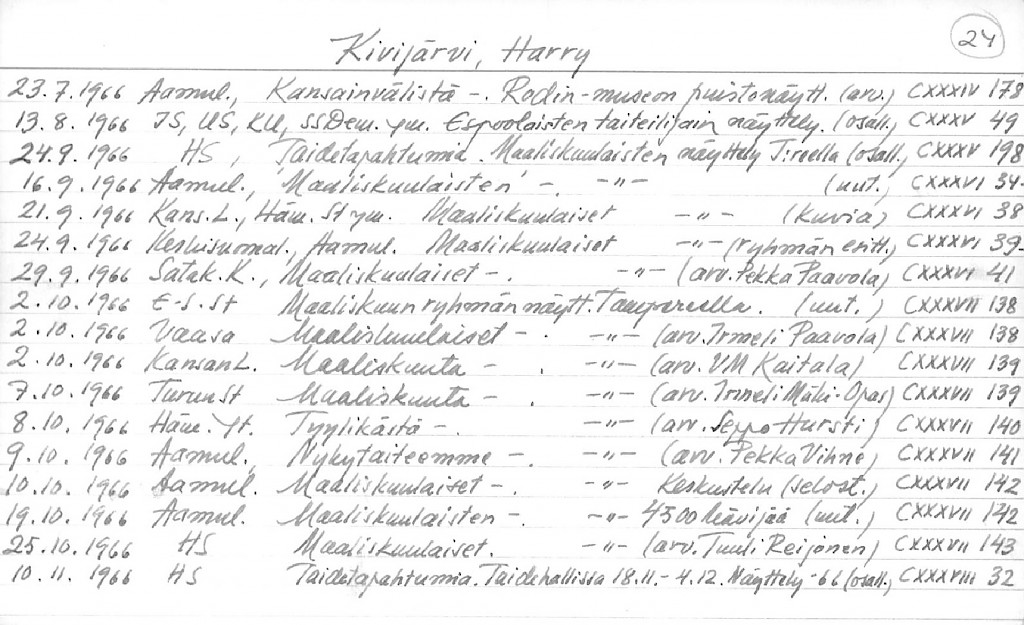 24
Kivijärvi, Harry
23.7.1966 Aamul., Kansainvälistä -. Rodin-museon puistonäytt. (arv.) CXXXIV 178
13.8.1966 IS, US, KU, SSDem. ym. Espoolaisten taiteilijain näyttely. (osall.) CXXXV 49
24.9.1966 HS, Taidetapahtumia. Maaliskuulaisten näyttely T:reella (osall.) CXXXV 198
16.9.1966 Aamul., 'Maaliskuulaisten' -. -"- (uut.) CXXXVI 34-
21.9.1966 Kans.L., Häm. St ym. Maaliskuulaiset -"- (kuvia) CXXXVI 38
24.9.1966 Keskisuomal., Aamul. Maaliskuulaiset -"- (ryhmän esitt.) CXXXVI 39-
29.9.1966 Satak.K., Maaliskuulaiset -. -"- (arv. Pekka Paavola) CXXXVI 41
2.10.1966 E-S.St Maaliskuun ryhmän näytt. Tampereella. (uut.) CXXXVII 138
2.10.1966 Vaasa Maaliskuulaiset -. -"- (arv. Irmeli Paavola) CXXXVII 138
2.10.1966 Kansan L. Maaliskuuta -. -"- (arv. VM Kaitala) CXXXVII 139
7.10.1966 Turun St Maaliskuuta -. -"- (arv. Irmeli Mäki-Opas) CXXXVII 139
8.10.1966 Häm. Yt. Tyylikästä -. -"- (arv. Seppo Hursti) CXXXVII 140
9.10.1966 Aamul. Nykytaiteemme -. -"- (arv. Pekka Vihne) CXXXVII 141
10.10.1966 Aamul. Maaliskuulaiset -. -"- Keskustelu (selost.) CXXXVII 142
19.10.1966 Aamul. Maaliskuulaisten -. -"- 4300 kävijää (uut.) CXXXVII 142
25.10.1966 HS Maaliskuulaiset. -"- (arv. Tuuli Reijonen) CXXXVII 143
10.11.1966 HS Taidetapahtumia. Taidehallissa 18.11.-4.12. Näyttely-66 (osall.) CXXXVIII 32